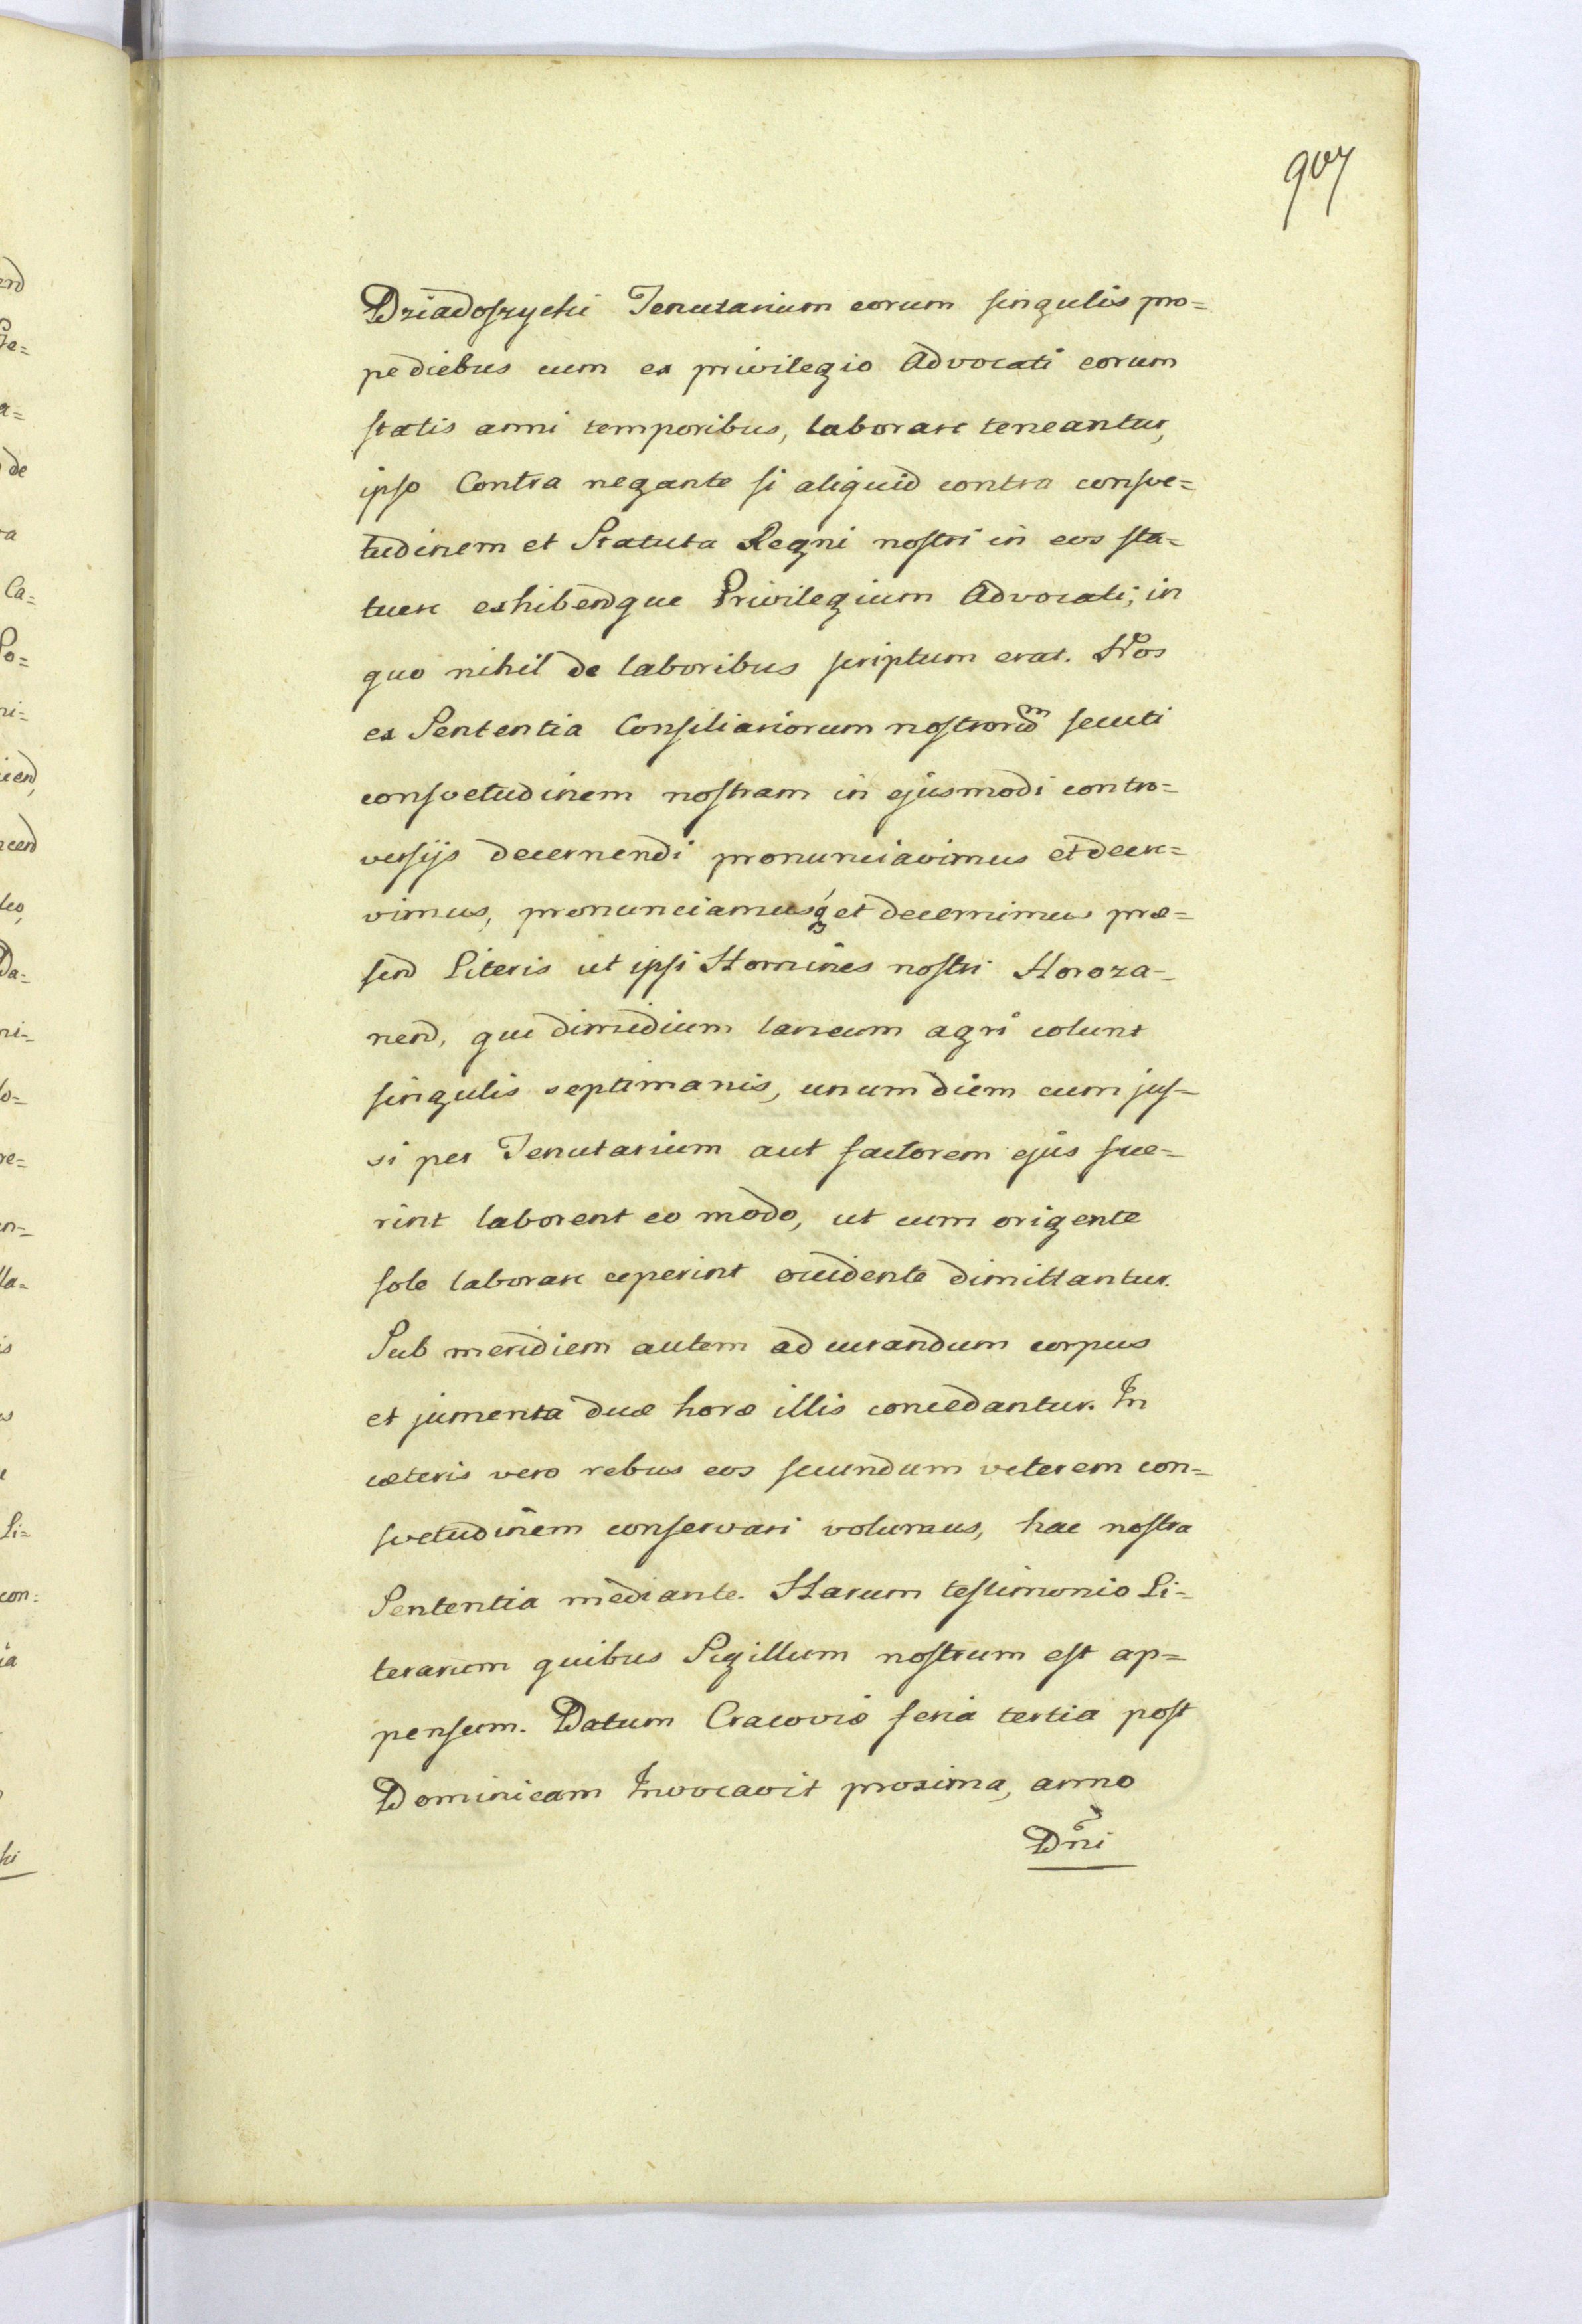 907
Dziadoszycki Tenutarium eorum singulis pro=
pe diebus cum ex privilegio Advocati eorum
statis anni temporibus, laborare teneantur,
ipso Contra negante si aliquid contra consve=
tudinem et Statuta Regni nostri in eos sta=
tuere exhibendque Privilegium Advocati; in
quo nihil de laboribus scriptum erat. Nos
ex Sententia Consiliariorum nostrorum secuti
consvetudinem nostram in ejusmodi contro=
versijs decernendi pronunciavimus et decre=
vimus, pronunciamusq et decernimus præ=
send Literis ut ipsi Homines nostri Horoza=
nend, qui dimidium laneum agri colunt
singulis septimanis, unum diem cum jus=
si per Tenutarium aut factorem ejus fue=
rint laborent eo modo, ut cum origente
sole laborare ceperint occidente dimittantur.
Sub meridiem autem ad curandum corpus
et jumenta duæ horæ illis concedantur. In
cæteris vero rebus eos secundum veterem con=
svetudinem conservari volumus, hac nostra
Sententia mediante. Harum testimonio Li=
terarum quibus Sigillum nostrum est ap=
pensum. Datum Cracoviæ feria tertia post
Dominicam Invocavit proxima, anno
Dni
end
Te=
a=
de
ra
Ca=
Po=
ni=
iend,
cend
leo,
Da=
ni=
lo=
re=
in=
la=
is
Li=
con:
ia
ki